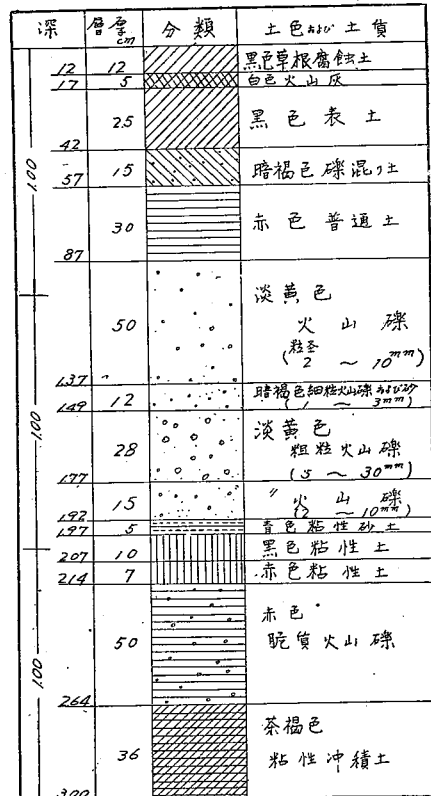 深 層厚cm 分類 土色および土質
12 12 黒色草根腐蝕土
17 5 白色火山灰
42 25 黒色表土
57 15 暗褐色礫混り土
87 30 赤色普通土
1.00
137 50 淡黄色
火山礫
(粒圣 2 ～ 10mm)
149 12 暗褐色細粒火山礫および砂
(1 ～ 3mm)
1.00
177 28 淡黄色
粗粒火山礫
(5 ～ 30mm)
192 15 〃 火山礫
(2 ～ 10mm)
197 5 青色粘性砂土
207 10 黒色粘性土
214 7 赤色粘性土
264 50 赤色
脆質火山礫
1.00
300 36 茶褐色
粘性冲積土